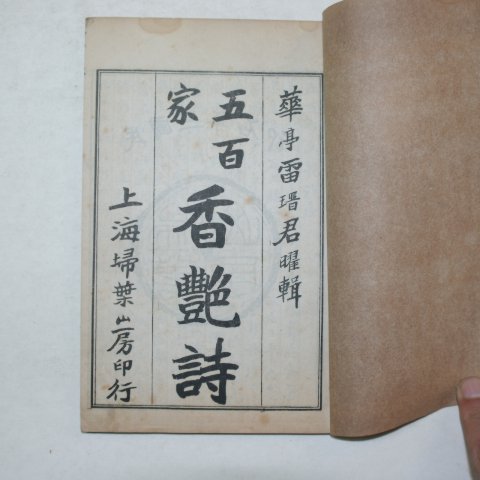 華亭雷瑨君曜輯
五百家
香艷詩
上海掃葉山房印行